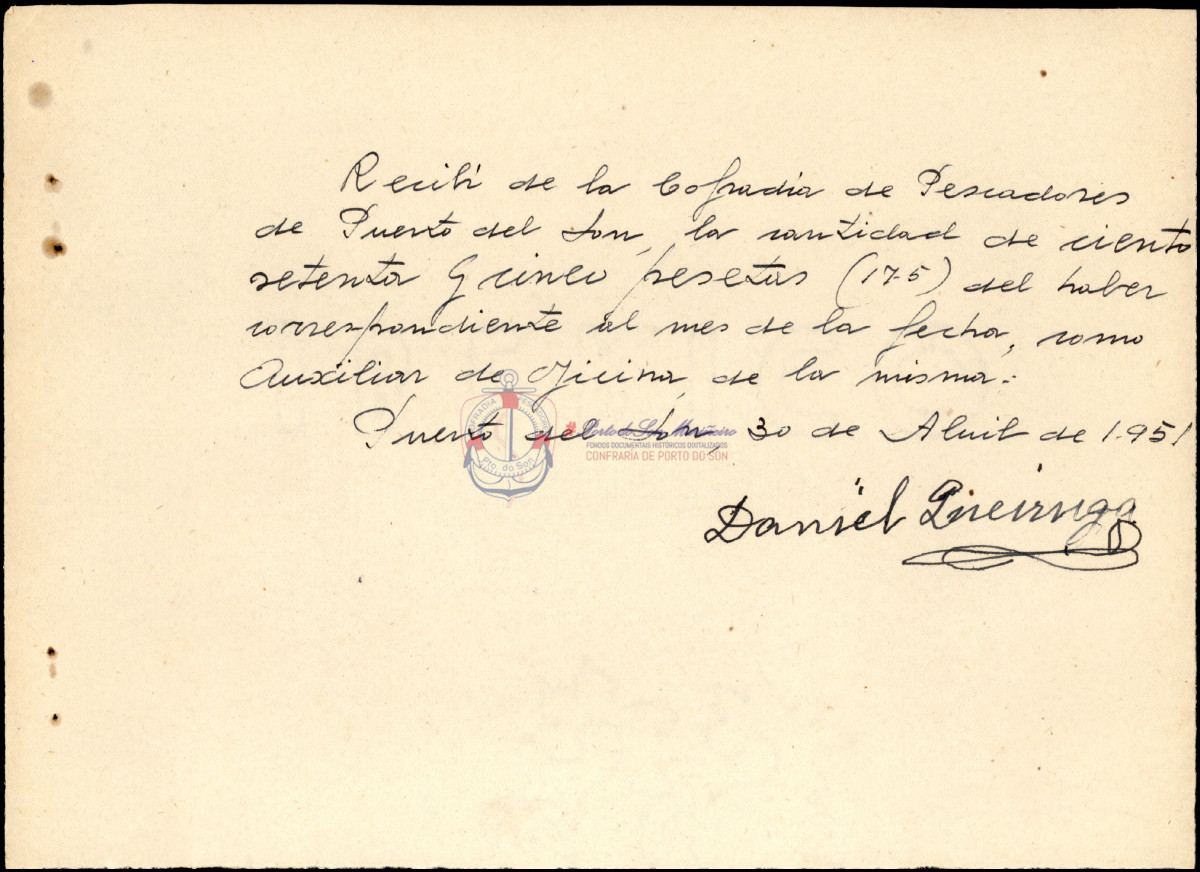 Recibí de la Cofradia de Pescadores
de Puerto del Son, la cantidad de ciento
setenta y cinco pesetas (175) del haber
correspondiente al mes de la fecha, como
Auxiliar de Oficina, de la misma.=
Puerto del Son, 30 de Abril de 1.951
Daniel Queiruga
COFRADIA PESCADORES
Pto. do Son
Porto do Son Mariñeiro
FONDOS DOCUMENTAIS HISTÓRICOS DIXITALIZADOS
CONFRARÍA DE PORTO DO SON